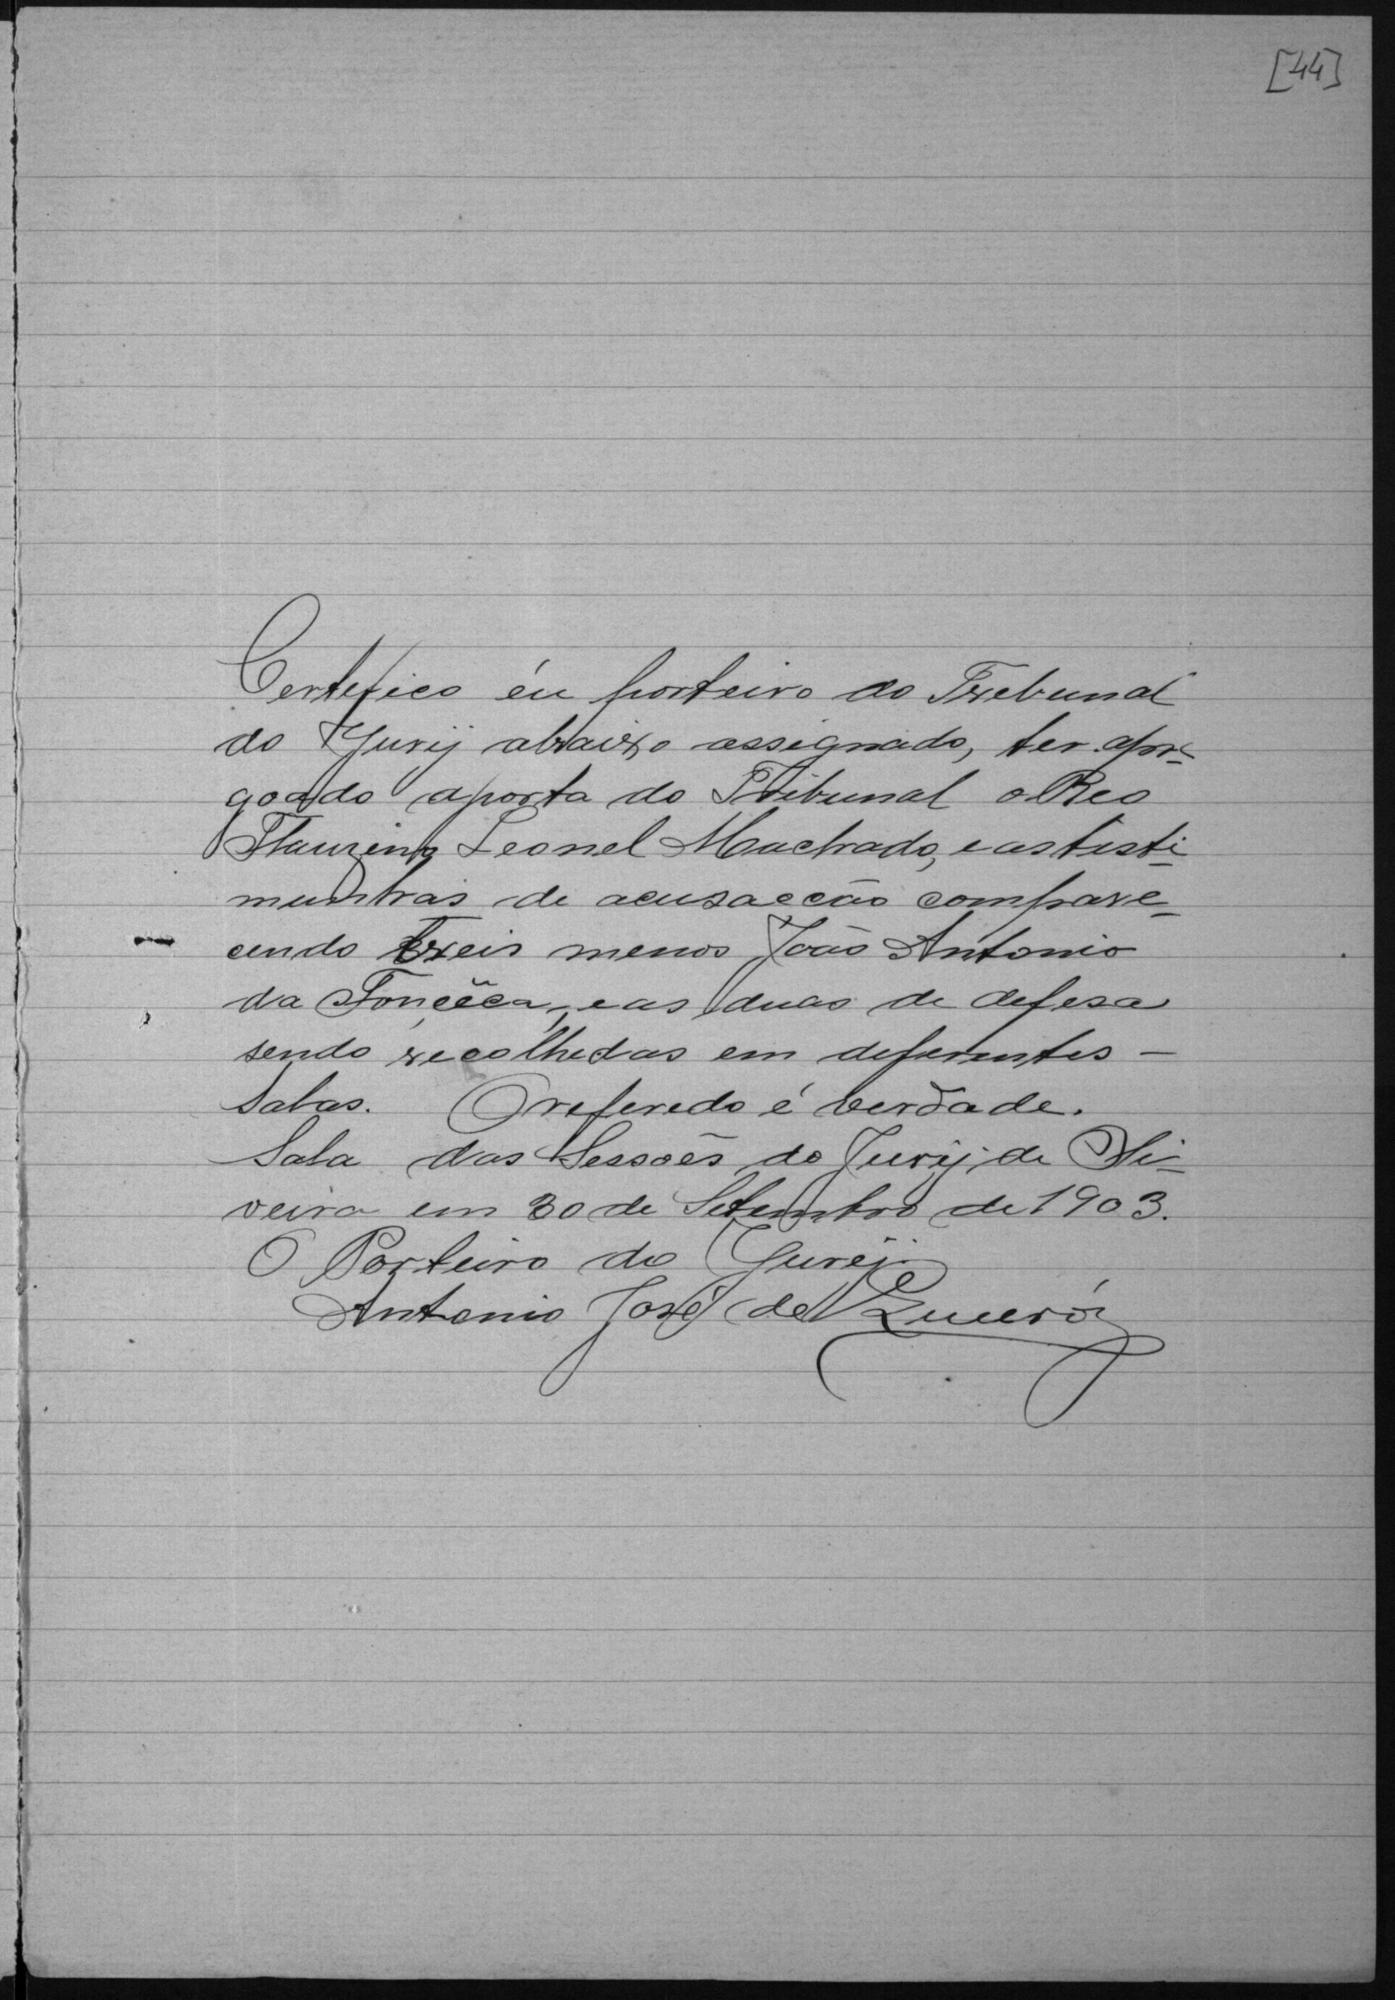 [44]
Certefico éu porteiro do Trebunal
do Jurij abaixo assignado, ter apr-
goado aporta do Tribunal o Reo
Flauzino Leonel Machado, e as testi-
munhas de acusacção compare-
cendo treis menos João Antonio
da Foncêca, e as duas de defesa
sendo recolhedas em deferentes -
Salas. O referedo é verdade.
Sala das Sessoẽs do Jurij de Oli-
veira em 30 de Setembro de 1903.
O Porteiro do Jurij.
Antonio José de Queiróz